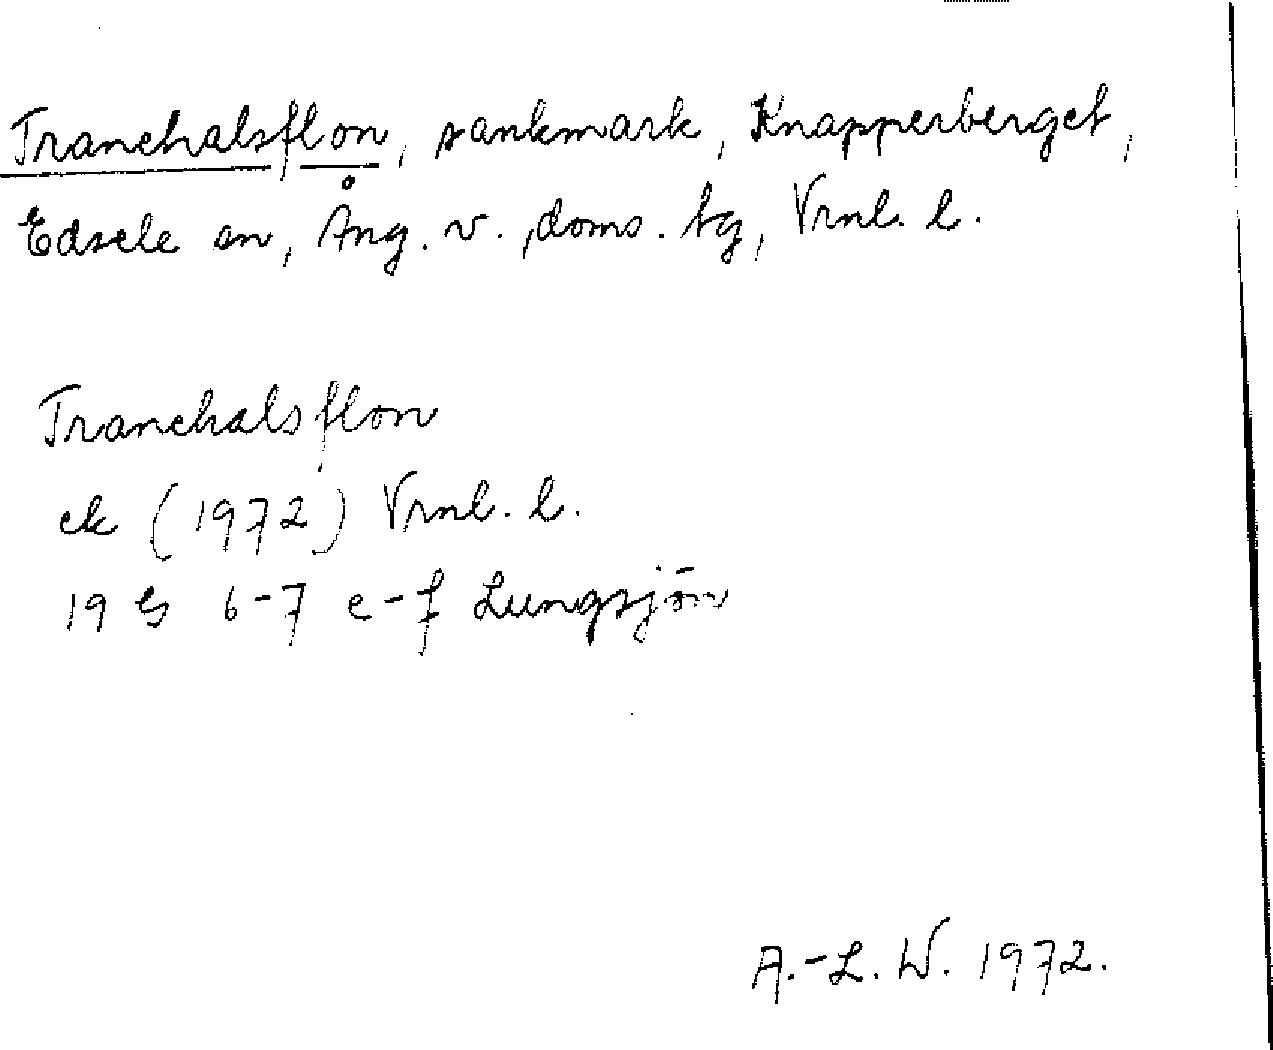 Tranehalsflon, sankmark, Knapperberget,
Edsele sn, Ång. v., doms. tg, Vrnl. l.
Tranehalsflon
ek (1972) Vrnl. l.
19 G 6-7 e-f Lungsjön
A.-L. W. 1972.